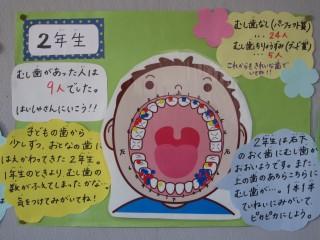 2年生
むし歯があった人は
9人でした。
はいしゃさんにいこう!!
むし歯なし(パーフェクト賞)
…24人
むし歯ちりょうずみ(グッド賞)
…5人
これからもきれいな歯で
いてね!!
子どもの歯から
少しずつ、おとなの歯に
はえかわってきた2年生。
1年生のときより、むし歯の
数がふえてしまったかな…。
気をつけてみがいてね!
2年生は右下
のおく歯にむし歯が
おおいようです。また、
上の歯のあちらこちらに
むし歯が…。1本1本
ていねいにみがいて、
ピカピカにしよう。